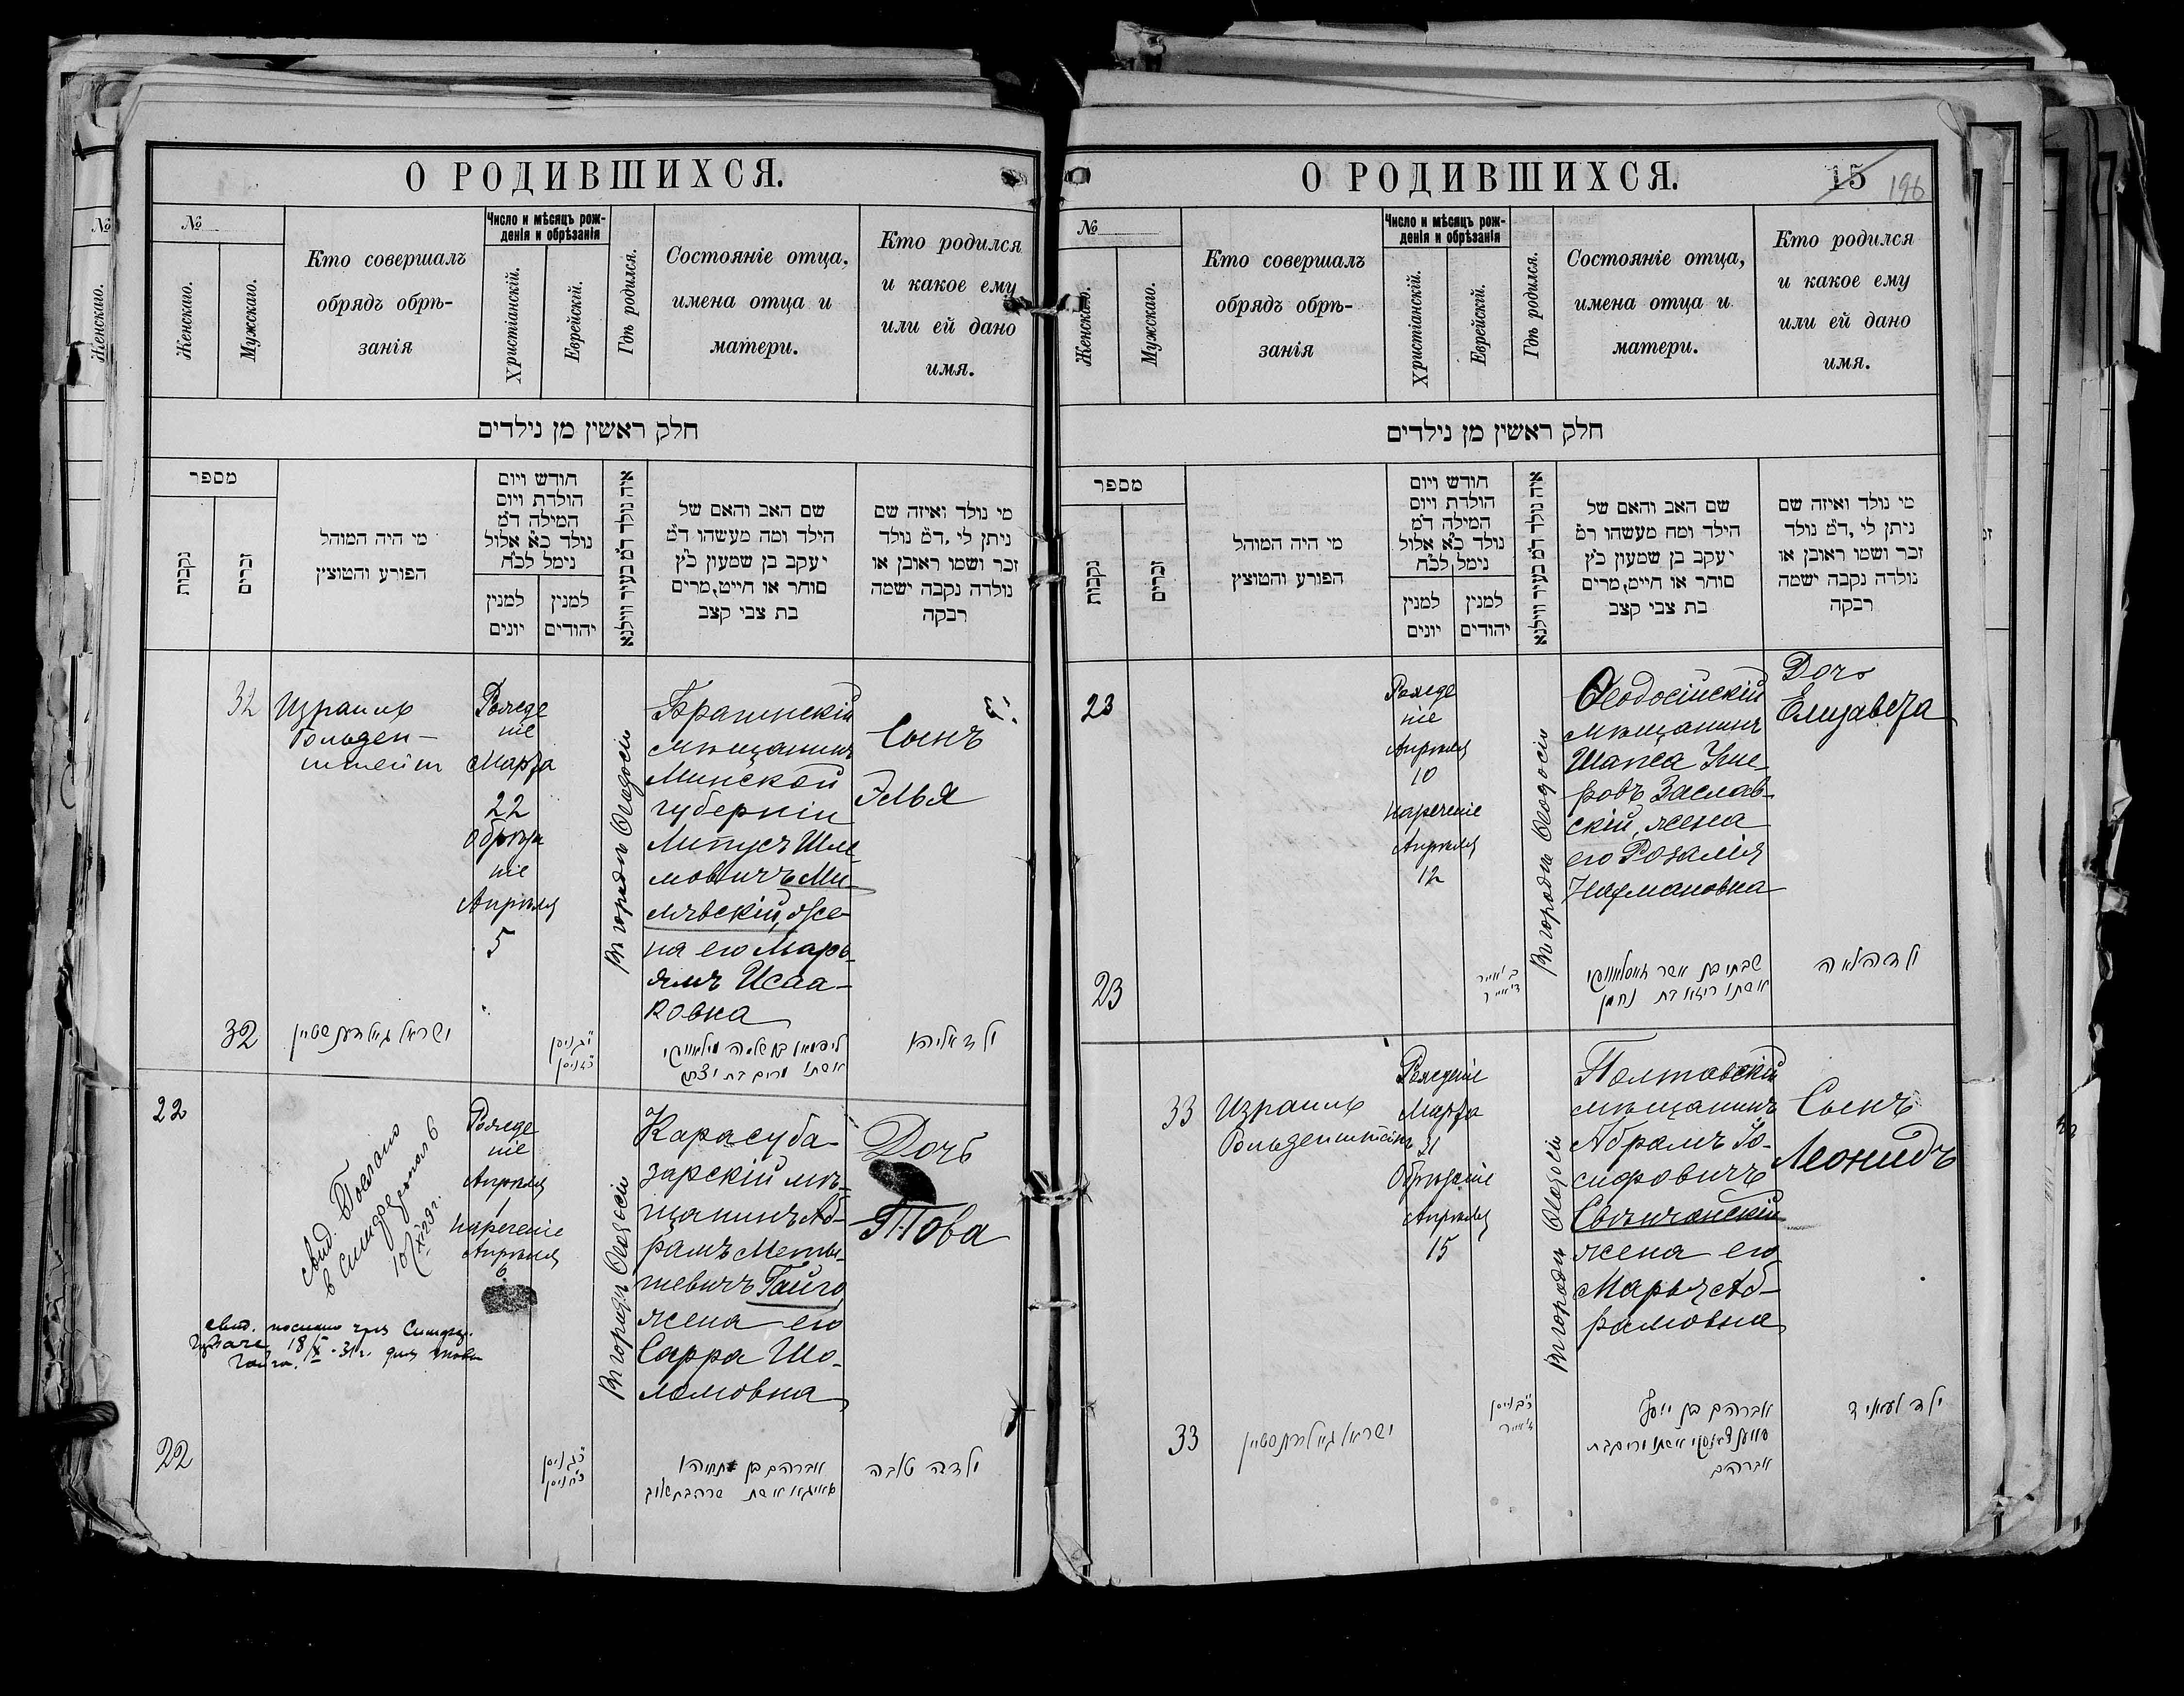 О РОДИВШИХСЯ.
№
Женскаго.
Мужскаго.
Кто совершалъ
обрядъ обрѣ-
занія
Число и мѣсяцъ рож-
денія и обрѣзанія
Христіанскій.
Еврейскій.
Гдѣ родился.
Состояніе отца,
имена отца и
матери.
Кто родился
и какое ему
или ей дано
имя.
חלק ראשין מן נילדים
מספר
נקבות
זכרים
מי היה המוהל
הפורע והמוצץ
חודש ויום
הולדת ויום
המילה ד״מ
נולד כ״א אלול
נימל לכ״ח
למנין
יונים
למנין
יהודים
איה נולד ד״מ בעיר ווילנא
שם האב והאם של
הילד ומה מעשהו ד״מ
יעקב בן שמעון כ״ץ
סוחר או חייט, מרים
בת צבי קצב
מי נולד ואיזה שם
ניתן לי, ד״מ נולד
זכר ושמו ראובן או
נולדה נקבה ושמה
רבקה
32
Израиль
Гольден-
штейн
Рожде
ніе
Марта
22
Обрѣза
ніе
Апрѣля
5
Въ городѣ Ѳеодосіи
Минской
губерніи
Липусъ Шле-
мовичъ Ми-
лявскій, же-
на его Марь-
ямъ Исаа-
ковна
Сынъ
Элья
32
ישראל גאלדענשטיין
אשתו מרים בת יצחק
ילד אליהו
22
Рожде
ніе
Апрѣля
1
нареченіе
Апрѣля
6
Въ городѣ Ѳеодосіи
Карасуба-
зарскій мѣ-
щанинъ Аб-
рамъ Меты-
шевичъ Гайго,
жена его
Сарра Шо-
ломовна
Дочь
Това
свид. Послано
22
כ״ג ניסן
כ״ח ניסן
אברהם בן מתתיהו
ילדה טובה
О РОДИВШИХСЯ.
15
196
№
Женскаго.
Мужскаго.
Кто совершалъ
обрядъ обрѣ-
занія
Число и мѣсяцъ рож-
денія и обрѣзанія
Христіанскій.
Еврейскій.
Гдѣ родился.
Состояніе отца,
имена отца и
матери.
Кто родился
и какое ему
или ей дано
имя.
חלק ראשין מן נילדים
מספר
נקבות
זכרים
מי היה המוהל
הפורע והמוצץ
חודש ויום
הולדת ויום
המילה ד״מ
נולד כ״א אלול
נימל לכ״ח
למנין
יונים
למנין
יהודים
איה נולד ד״מ בעיר ווילנא
שם האב והאם של
הילד ומה מעשהו ד״מ
יעקב בן שמעון כ״ץ
סוחר או חייט, מרים
בת צבי קצב
מי נולד ואיזה שם
ניתן לי, ד״מ נולד
זכר ושמו ראובן או
נולדה נקבה ושמה
רבקה
23
Рожде
ніе
Апрѣля
10
нареченіе
Апрѣля
12
Въ городѣ Ѳеодосіи
Ѳеодосійскій
мѣщанинъ
Шапса Уше-
ровъ Заслав-
скій, жена
его Розалія
Нахмановна
Дочь
Елизавета
23
ב׳ אייר
ד׳ אייר
שבתי בן אשר זאסלאווסקי
אשתו ריזא בת נחמן
ילדה לאה
33
Израиль
Гольденштейнъ
Рожденіе
Марта
31
Обрѣзаніе
Апрѣля
15
Въ городѣ Ѳеодосіи
Полтавскій
мѣщанинъ
Абрамъ Іо-
сифовичъ
Свѣчанскій
жена его
Марья Аб-
рамовна
Сынъ
Леонидъ
33
ישראל גאלדענשטיין
כ״ב ניסן
אברהם בן יוסף
אברהם